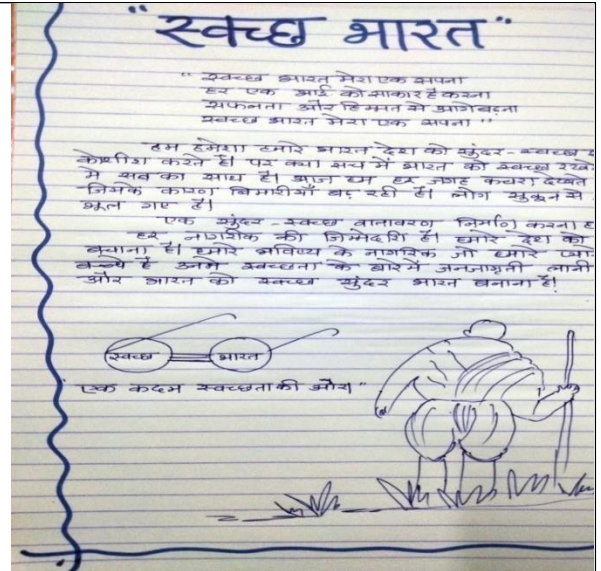 "स्वच्छ भारत"
"स्वच्छ भारत मेरा एक सपना
हर एक आई को साकार है करना
सफलता और हिम्मत से आगे बढना
स्वच्छ भारत मेरा एक सपना"
हम हमेशा हमारे भारत देश को सुंदर-स्वच्छ
कोशीश करते है। पर क्या सच में भारत को स्वच्छ रखे
मे सब का साथ है। आज हम हर जगह कचरा देखते
जिसके कारण बिमारीयाँ बढ रही है। लोग सुकून से
भूल गए है।
एक सुंदर-स्वच्छ वातावरण निर्माण करना ह
हर नागरीक की जिम्मेदारि है। हमारे देश को
बचाना है। हमारे भविष्य के नागरिक जो हमारे प्या
बच्चे है उनमे स्वच्छता के बारे में जनजागृती लानी
और भारत को स्वच्छ सुंदर भारत बनाना है।
स्वच्छ भारत
"एक कदम स्वच्छता की और"